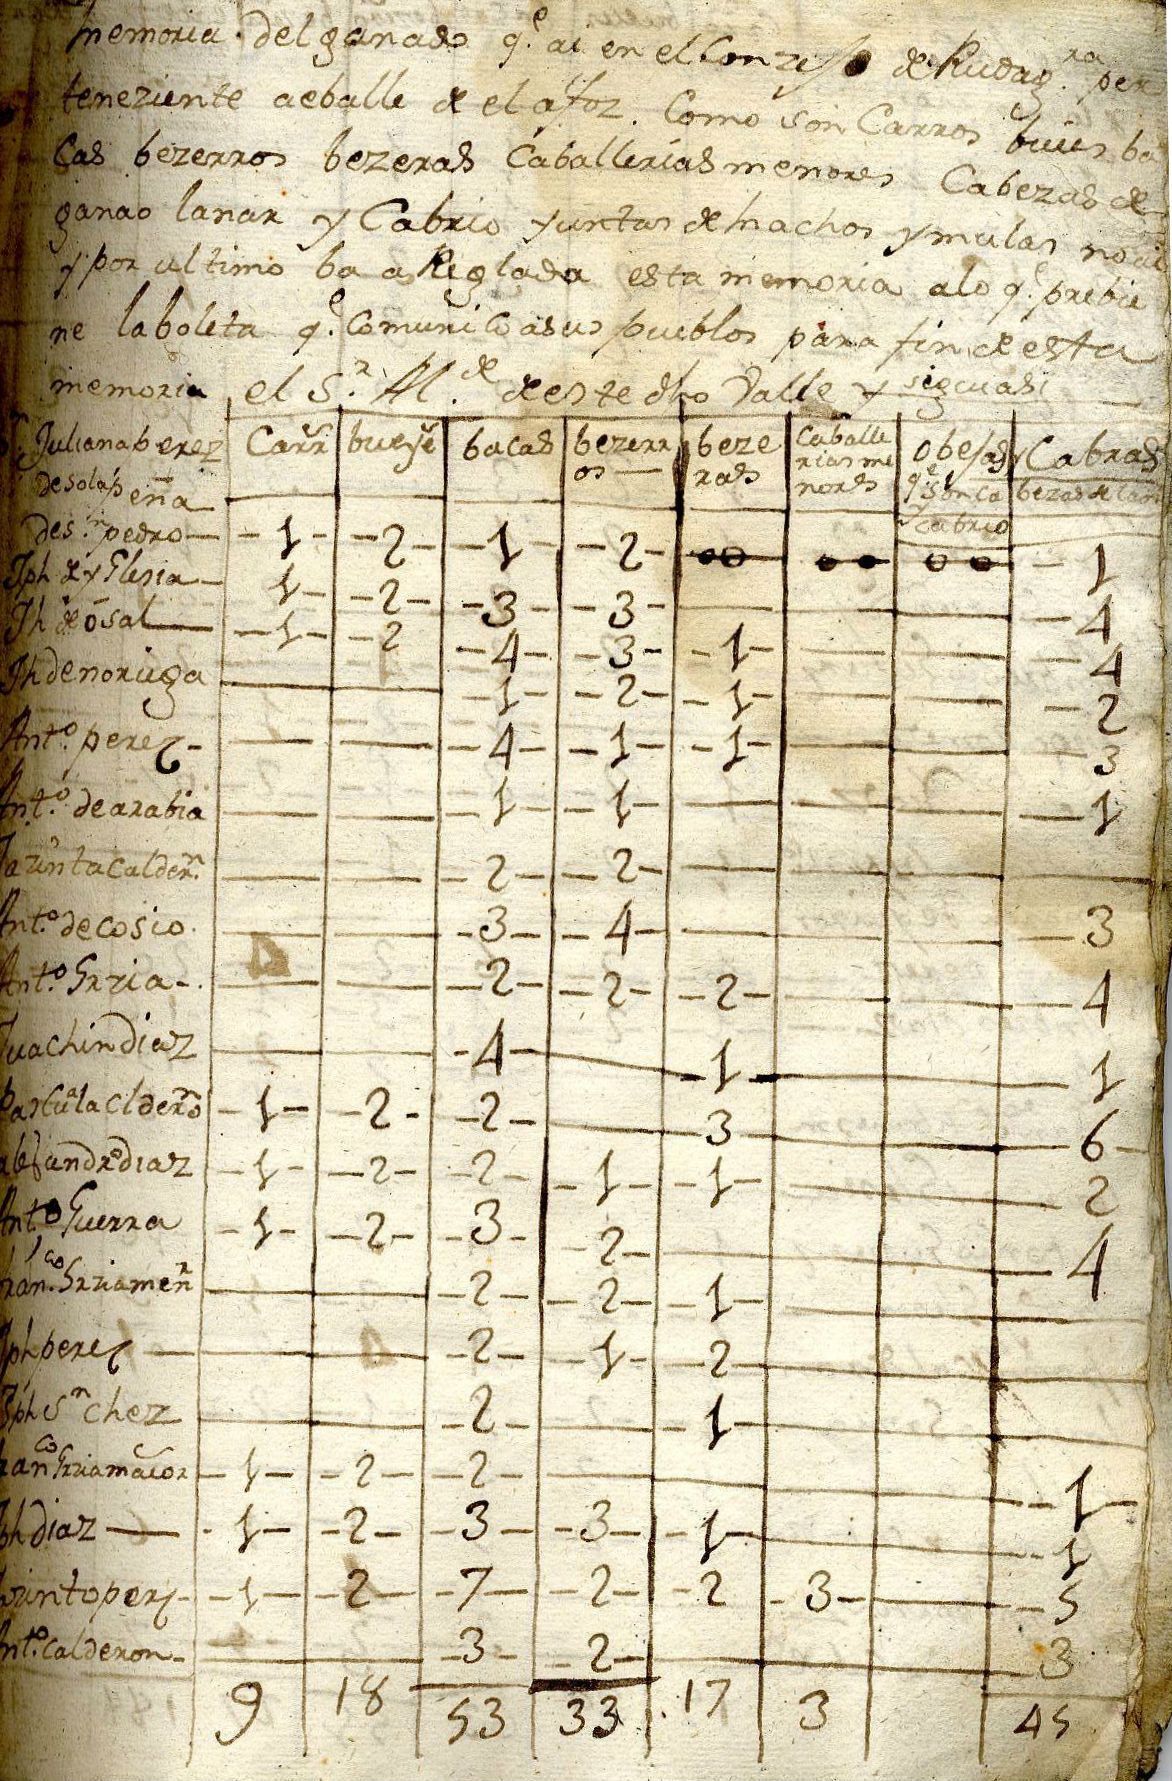 memoria del ganado q.e ai en el Conzejo de Rudag.ra per
teneziente aeballe de el alfoz. Como son Carros buies ba
Cas bezerros bezeras Caballerias menores Cabezas de
ganao lanar y Cabrio yuntas de machos y mulas no ai
y por ultimo ba aReglada esta memoria alo q.e prebie
ne laboleta q.e Comunico asus pueblos para fin de esta
memoria el S.r Al.de de este dho Valle y sigcuasi
Juliana perez Carr bueye bacas bezerr beze Caballe obejas y Cabras
os — ras rias me q.e son ca bezas de lan
nores y cabrio
de sola peña
de s.n pedro — 1 — 2 — 1 — 2 — oo oo oo — 1
Jph de yglesia — 1 — 2 — 3 — 3 — — — — 4
Jh de osal — 1 — 2 — 4 — 3 — 1 — — — 4
Jh de noriega — — 1 — 2 — 1 — — — 2
Ant.o perez — — 4 — 1 — 1 — — — 3
Ant.o de arabia — — 1 — 1 — — — — 1
Jazinta Calder.n — — 2 — 2 — — — —
Ant.o de cosio — — 3 — 4 — — — — 3
Ant.o Grzia — — 2 — 2 — 2 — — — 4
Juachin diaz — — 4 — 1 — — — 1
Pascula Clderon — 1 — 2 — 2 — 3 — — — 6
alejandro diaz — 1 — 2 — 2 — 1 — 1 — — — 2
Ant.o Guerra — 1 — 2 — 3 — 2 — — — 4
fran.co Grzia men.r — — 2 — 2 — 1 — — —
Jph perez — — 2 — 1 — 2 — — —
Jph S.nchez — — 2 — 1 — — —
fran.co Grzia maior — 1 — 2 — 2 — — — — 1
Jph diaz — 1 — 2 — 3 — 3 — 1 — — — 1
Jazinto perz — 1 — 2 — 7 — 2 — 2 — 3 — — 5
Ant.o Calderon — — 3 — 2 — — — 3
9 18 53 33 17 3 45